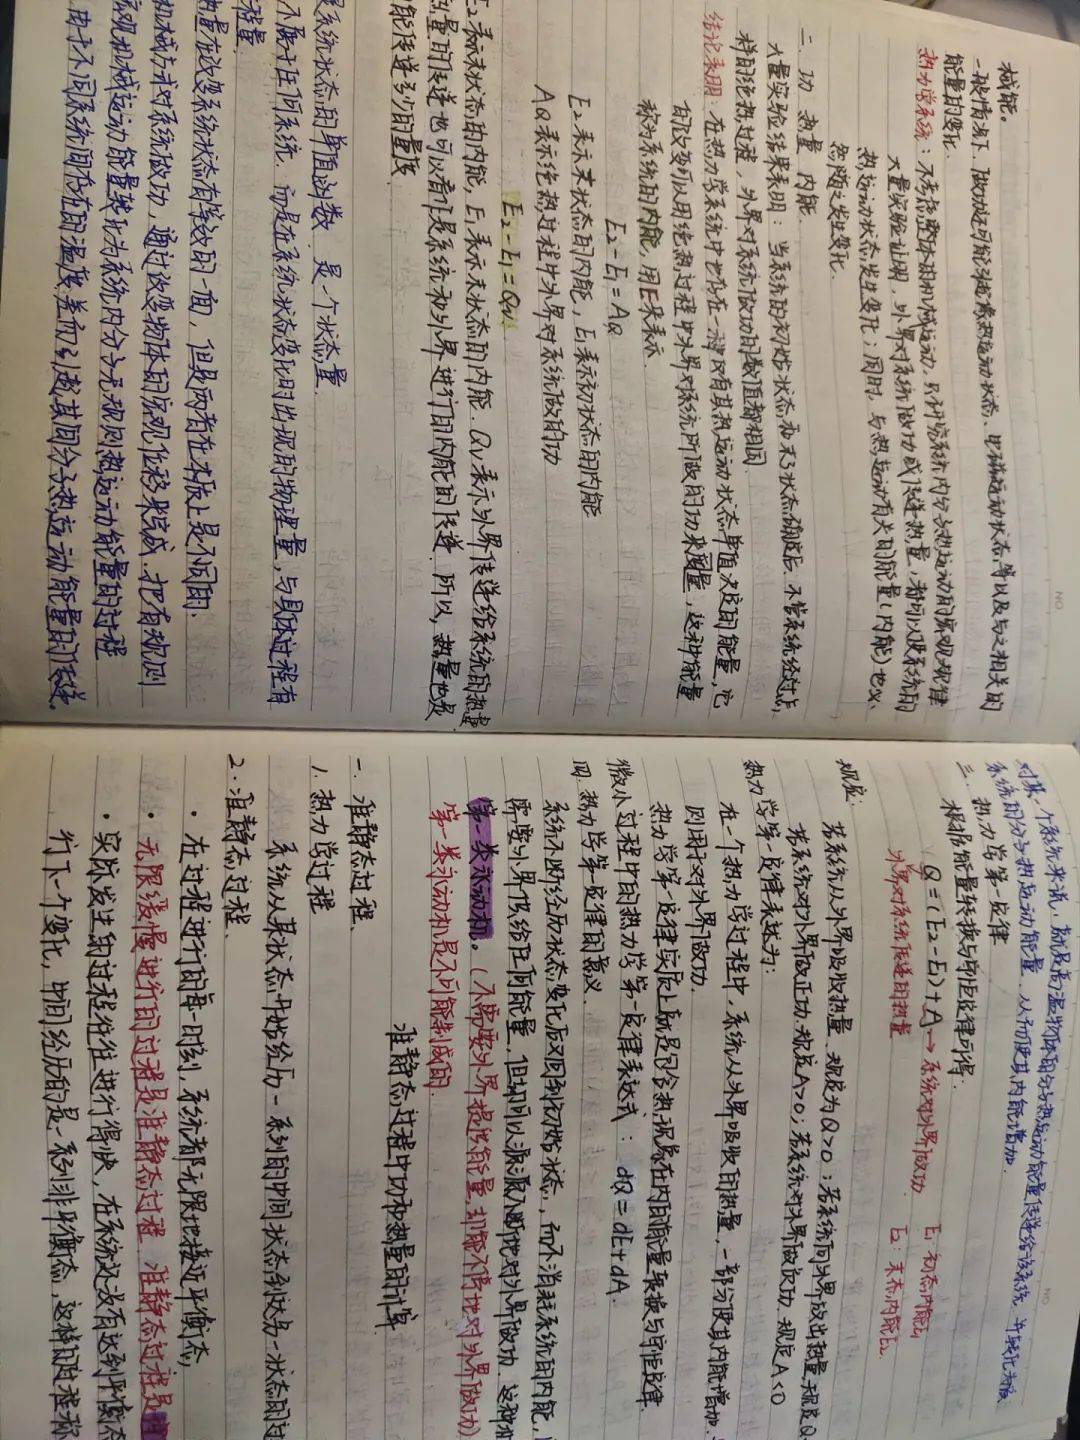 械能。
一般情况下,做功还可能引起系统热运动状态、电磁运动状态等以及与之相关的
能量的变化.
热力学系统:不考虑整体的机械运动,只研究系统内分子热运动的宏观规律
大量实验证明,外界对系统做功或传递热量,都可以使系统的
热运动状态发生变化;同时,与热运动有关的能量(内能)也必
然随之发生变化.
二、功 热量 内能
大量实验结果表明:当系统的初始状态和末了状态确定后,不管系统经过怎
样的绝热过程,外界对系统做功的数值都相同
结论表明:在热力学系统中也存在一种仅有其热运动状态单值决定的能量,它
的改变可以用绝热过程中外界对系统所做的功来量度,这种能量
称为系统的内能,用E来表示.
E₂-E₁=AQ
E₂表示末状态的内能,E₁表示初状态的内能
AQ表示绝热过程中外界对系统做的功
E₂-E₁=Qv
E₂表示末状态的内能,E₁表示末状态的内能.Qv表示外界传递给系统的热量
热量的传递也可以看作是系统和外界进行的内能的传递.所以,热量也是
能传递多少的量度
是系统状态的单值函数.是一个状态量.
不属于任何系统.而是在系统状态变化时出现的物理量,与具体过程有
程量.
热量在改变系统状态有等效的一面,但是两者在本质上是不同的:
机械方式对系统做功,通过改变物体的宏观位移来完成.把有规则
宏观机械运动能量转化为系统内分子无规则热运动能量的过程
由于不同系统间存在的温度差而引起其间分子热运动能量的传递.
对某一个系统来说,就是高温物体的分子热运动能量传递给该系统,并转化为该
系统的分子热运动能量,从而使其内能增加.
三、热力学第一定律
根据能量转换与守恒定律可得:
Q=(E₂-E₁)+A→系统对外界做功. E₁:初态内能E₁
外界对系统传递的热量 E₂:末态内能E₂.
规定:
若系统从外界吸收热量,规定为Q>0;若系统向外界放出热量,规定Q
若系统对外界做正功,规定A>0;若系统对外界做负功,规定A<0
热力学第一定律表述为:
在一个热力学过程中,系统从外界吸收的热量,一部分使其内能增加.
则用于对外界做功.
热力学第一定律实质上就是包含热现象在内的能量转换与守恒定律.
微小过程中的热力学第一定律表达式: dQ=dE+dA.
四.热力学第一定律的意义.
系统不断经历状态变化后又回到初始状态,而不消耗系统的内能,
需要外界供给任何能量,但却可以源源不断地对外界做功.这种
第一类永动机。(不需要外界提供能量,却能不停地对外界做功)
第一类永动机是不可能制成的.
准静态过程中功和热量的计算
一.准静态过程.
1.热力学过程
系统从某状态开始经历一系列的中间状态到达另一状态的过
2.准静态过程.
·在过程进行的每一时刻,系统都无限地接近平衡态,
·无限缓慢进行的过程是准静态过程.准静态过程是理
·实际发生的过程往往进行得快,在系统还没有达到平衡态
行下一个变化,中间经历的是一系列非平衡态,这样的过程称
NO
NO